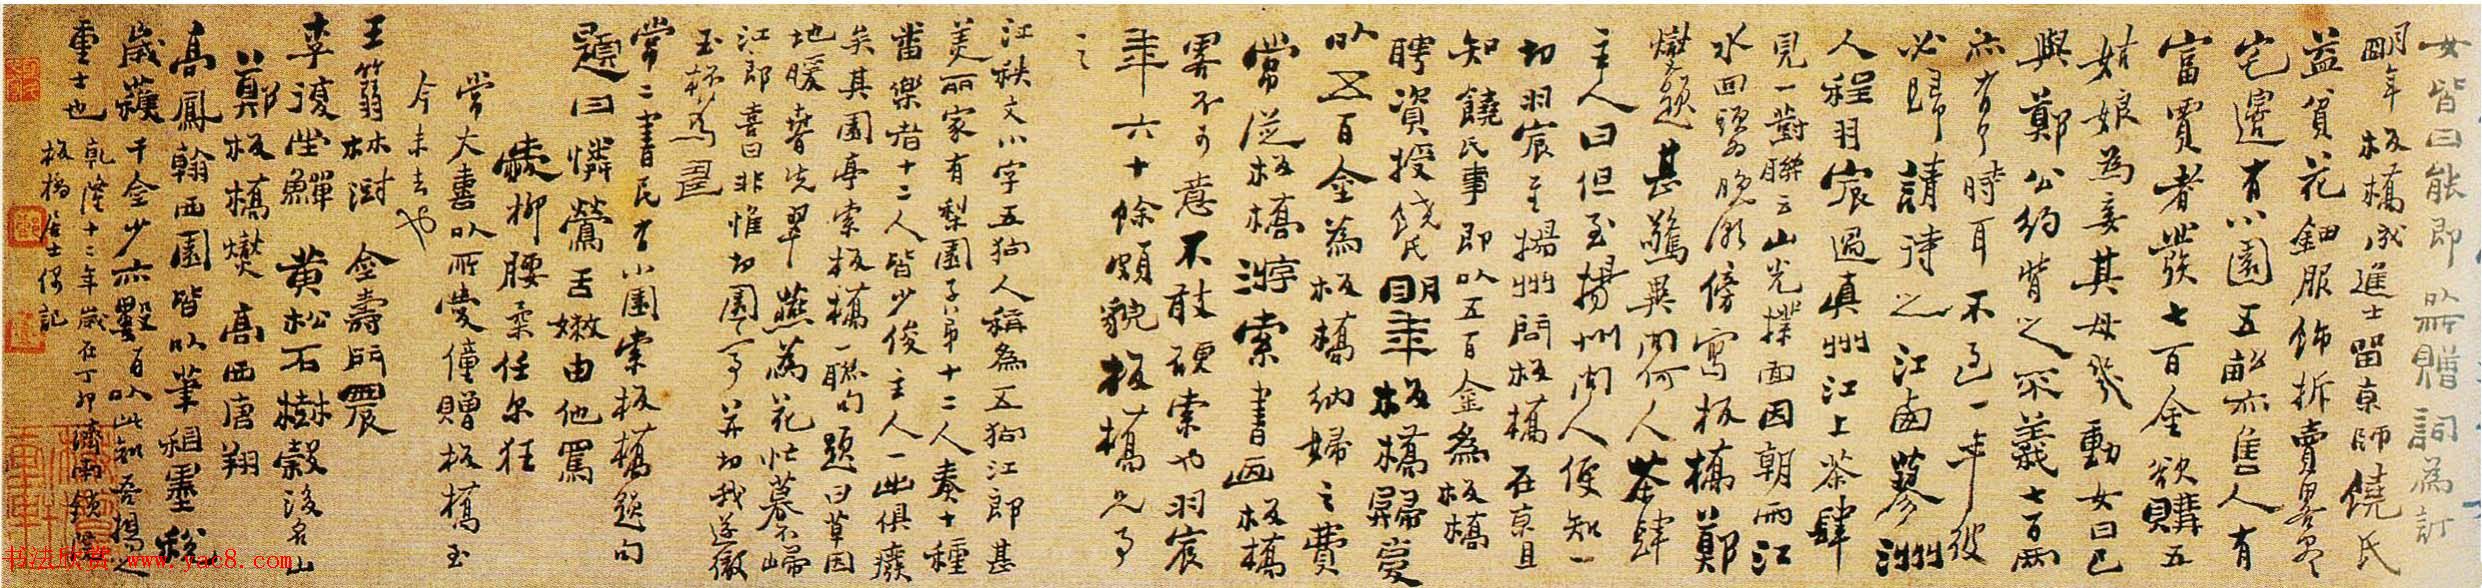 女皆曰能即所贈詞為訂
明年板橋成進士留京師饒氏
益貧花鈿服飾拆賣略盡
宅邊有小園五畝亦售人有
富賈者發七百金欲購五
姑娘為妾其母幾動女曰已
與鄭公約背之不義七百兩
亦有了時耳不過一年彼
必歸請待之江西蓼洲
人程羽宸過真州江上茶肆
見一對聯云山光撲面因朝雨江
水回頭為晚潮傍寫板橋鄭
燮題甚驚異問何人茶肆
主人曰但至揚州問人便知一
切羽宸至揚州問板橋在京且
知饒氏事即以五百金為板橋
聘資授饒氏明年板橋歸復
以五百金為板橋納婦之費
常從板橋游索書画板橋
略不可意不敢硬索也羽宸
年六十餘頗貌板橋兄事
之
江秩文小字五狗人稱為五狗江郎甚
美丽家有梨園子弟十二人奏十種
番樂者十二人皆少俊主人一出俱廢
矣其園亭索板橋一聯句題曰草因
地暖春先翠燕為花忙暮不歸
江郎喜曰非惟切園亭并切我遂徹
玉杯為壽
常二書民有小園索板橋題句
題曰憐鶯舌嫩由他罵
愛柳腰柔任尔狂
常大喜以所愛僮贈板橋至
今未去也
王箬林澍 金壽門農
李復堂鱓 黃松石樹穀後名山
鄭板橋燮 高西唐翔
高鳳翰西園皆以筆租墨稅
歲獲千金少亦數百以此知吾揚之
重士也
乾隆十二年歲在丁卯濟南鎖院
板橋居士偶記
书法欣赏 www.yac8.com